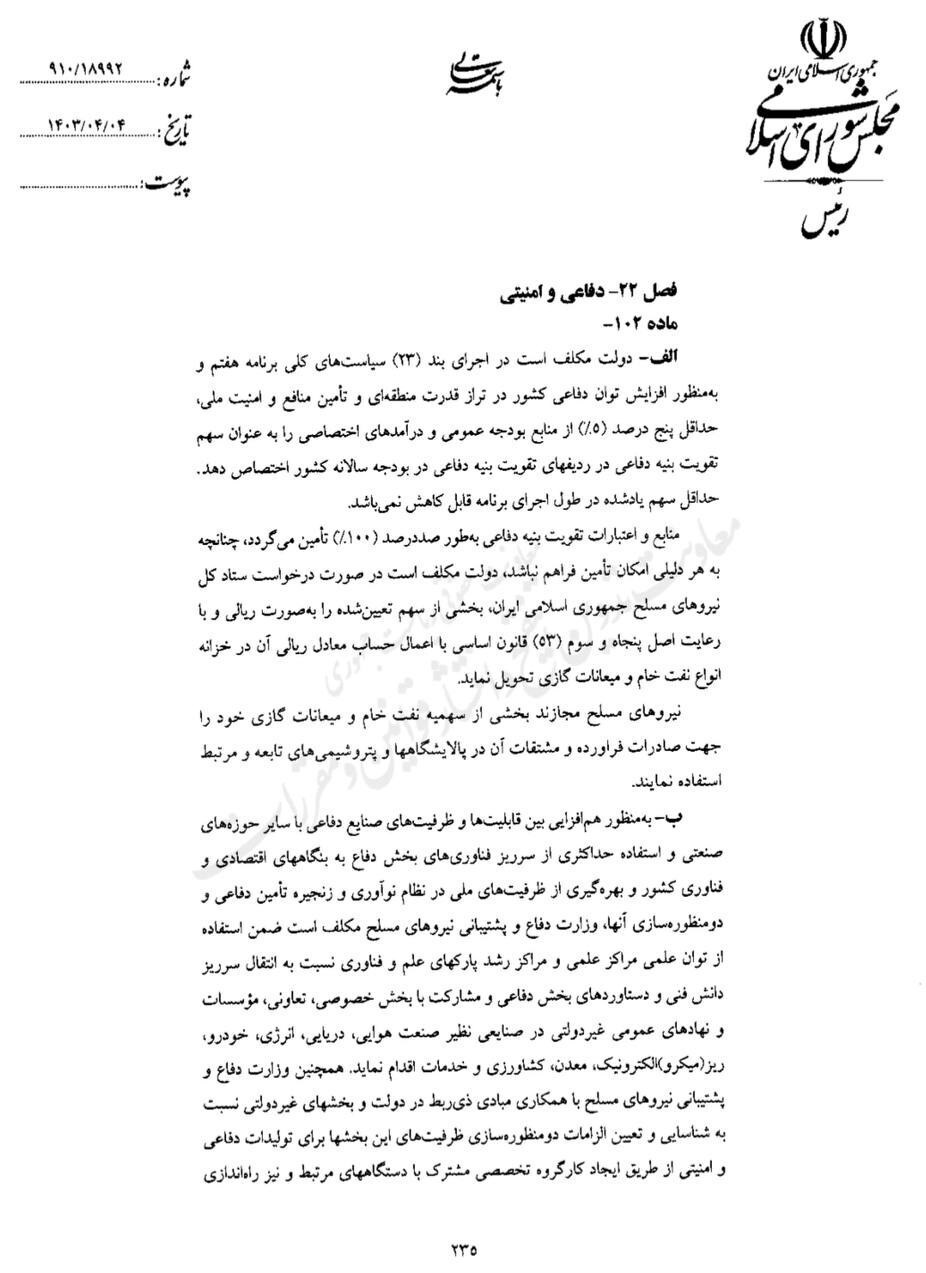 جمهوری اسلامی ایران
مجلس شورای اسلامی
رئیس
باسمه تعالی
شماره: ۹۱۰/۱۸۹۹۲
تاریخ: ۱۴۰۳/۰۴/۰۴
پیوست:
فصل ۲۲- دفاعی و امنیتی
ماده ۱۰۲-
الف- دولت مکلف است در اجرای بند (۲۳) سیاست‌های کلی برنامه هفتم و
به‌منظور افزایش توان دفاعی کشور در تراز قدرت منطقه‌ای و تأمین منافع و امنیت ملی،
حداقل پنج درصد (۵٪) از منابع بودجه عمومی و درآمدهای اختصاصی را به عنوان سهم
تقویت بنیه دفاعی در ردیفهای تقویت بنیه دفاعی در بودجه سالانه کشور اختصاص دهد.
حداقل سهم یادشده در طول اجرای برنامه قابل کاهش نمی‌باشد.
منابع و اعتبارات تقویت بنیه دفاعی به‌طور صددرصد (۱۰۰٪) تأمین می‌گردد، چنانچه
به هر دلیلی امکان تأمین فراهم نباشد، دولت مکلف است در صورت درخواست ستاد کل
نیروهای مسلح جمهوری اسلامی ایران، بخشی از سهم تعیین‌شده را به‌صورت ریالی و با
رعایت اصل پنجاه و سوم (۵۳) قانون اساسی با اعمال حساب معادل ریالی آن در خزانه
انواع نفت خام و میعانات گازی تحویل نماید.
نیروهای مسلح مجازند بخشی از سهمیه نفت خام و میعانات گازی خود را
جهت صادرات فراورده و مشتقات آن در پالایشگاهها و پتروشیمی‌های تابعه و مرتبط
استفاده نمایند.
ب- به‌منظور هم‌افزایی بین قابلیت‌ها و ظرفیت‌های صنایع دفاعی با سایر حوزه‌های
صنعتی و استفاده حداکثری از سرریز فناوری‌های بخش دفاع به بنگاههای اقتصادی و
فناوری کشور و بهره‌گیری از ظرفیت‌های ملی در نظام نوآوری و زنجیره تأمین دفاعی و
دومنظوره‌سازی آنها، وزارت دفاع و پشتیبانی نیروهای مسلح مکلف است ضمن استفاده
از توان علمی مراکز علمی و مراکز رشد پارکهای علم و فناوری نسبت به انتقال سرریز
دانش فنی و دستاوردهای بخش دفاعی و مشارکت با بخش خصوصی، تعاونی، مؤسسات
و نهادهای عمومی غیردولتی در صنایعی نظیر صنعت هوایی، دریایی، انرژی، خودرو،
ریز(میکرو)الکترونیک، معدن، کشاورزی و خدمات اقدام نماید. همچنین وزارت دفاع و
پشتیبانی نیروهای مسلح با همکاری مبادی ذی‌ربط در دولت و بخشهای غیردولتی نسبت
به شناسایی و تعیین الزامات دومنظوره‌سازی ظرفیت‌های این بخشها برای تولیدات دفاعی
و امنیتی از طریق ایجاد کارگروه تخصصی مشترک با دستگاههای مرتبط و نیز راه‌اندازی
معاونت تدوین، تنقیح و انتشار قوانین و مقررات
۲۳۵